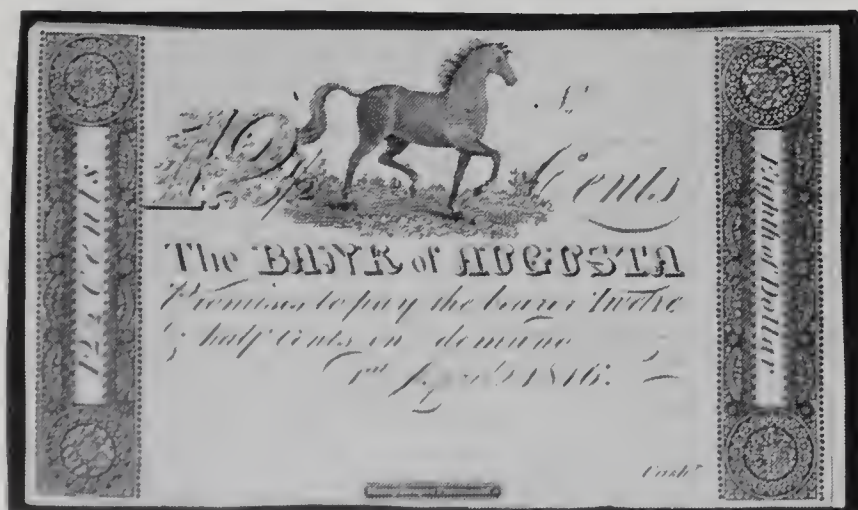 12½ Cents
12½ Cents
Eighth of Dollar
The BANK of AUGUSTA
Promises to pay the bearer Twelve
& half Cents on demand
1st April 1816.
Cashr